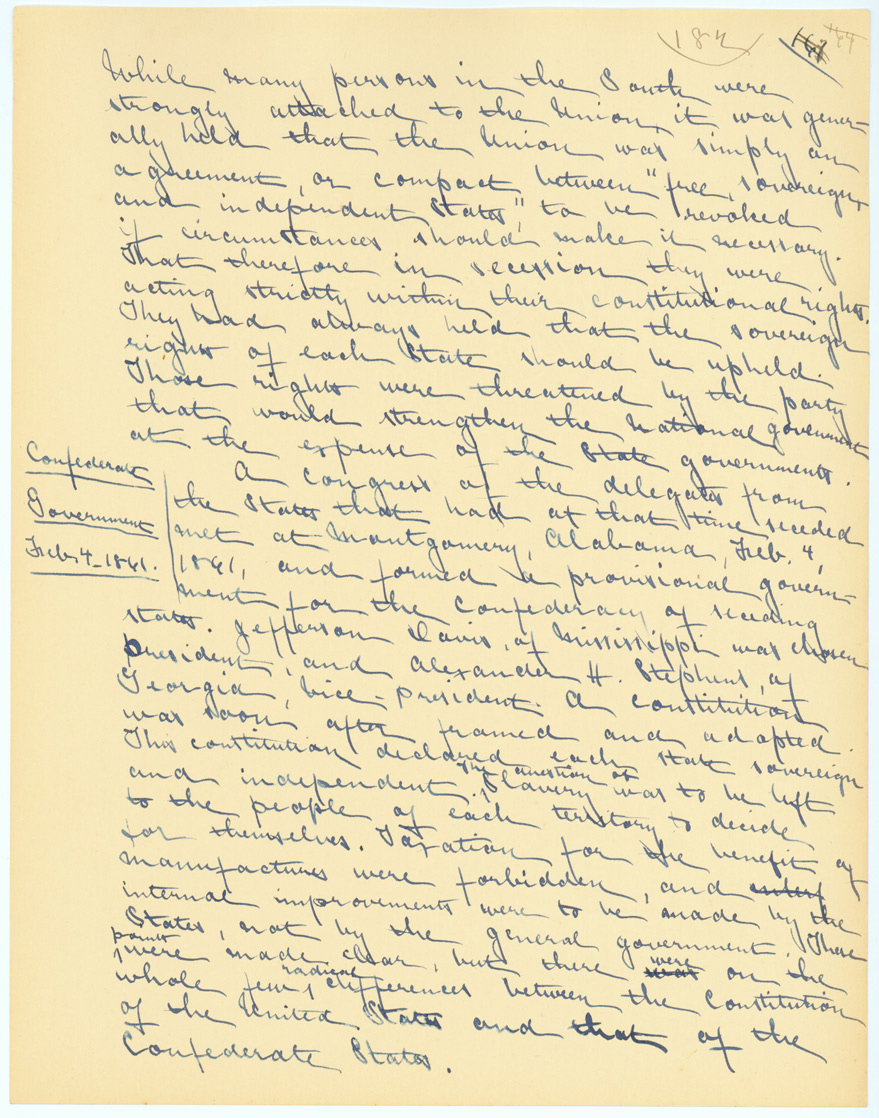 182
While many persons in the South were
strongly attached to the Union, it was gener-
ally held that the Union was simply an
agreement, or compact between "free, sovereign,
and independent States," to be revoked
if circumstances should make it necessary.
That therefore in secession they were
acting strictly within their constitutional rights.
They had always held that the sovereign
rights of each State should be upheld.
Those rights were threatened by the party
that would strengthen the national government
at the expense of the State governments.
Confederate
Government
Feb. 4-1861.
A Congress of the delegates from
the States that had at that time seceded
met at Montgomery, Alabama, Feb. 4,
1861, and formed a provisional govern-
ment for the Confederacy of seceding
states. Jefferson Davis, of Mississippi was chosen
president, and Alexander H. Stephens, of
Georgia, vice-president. A constitution
was soon after framed and adopted.
This constitution declared each state sovereign
and independent. The question of Slavery was to be left
to the people of each territory to decide
for themselves. Taxation for the benefit of
manufactures were forbidden, and
internal improvements were to be made by the
States, not by the general government. These
points were made clear, but there were on the
whole few radical differences between the Constitution
of the United States and that of the
Confederate States.